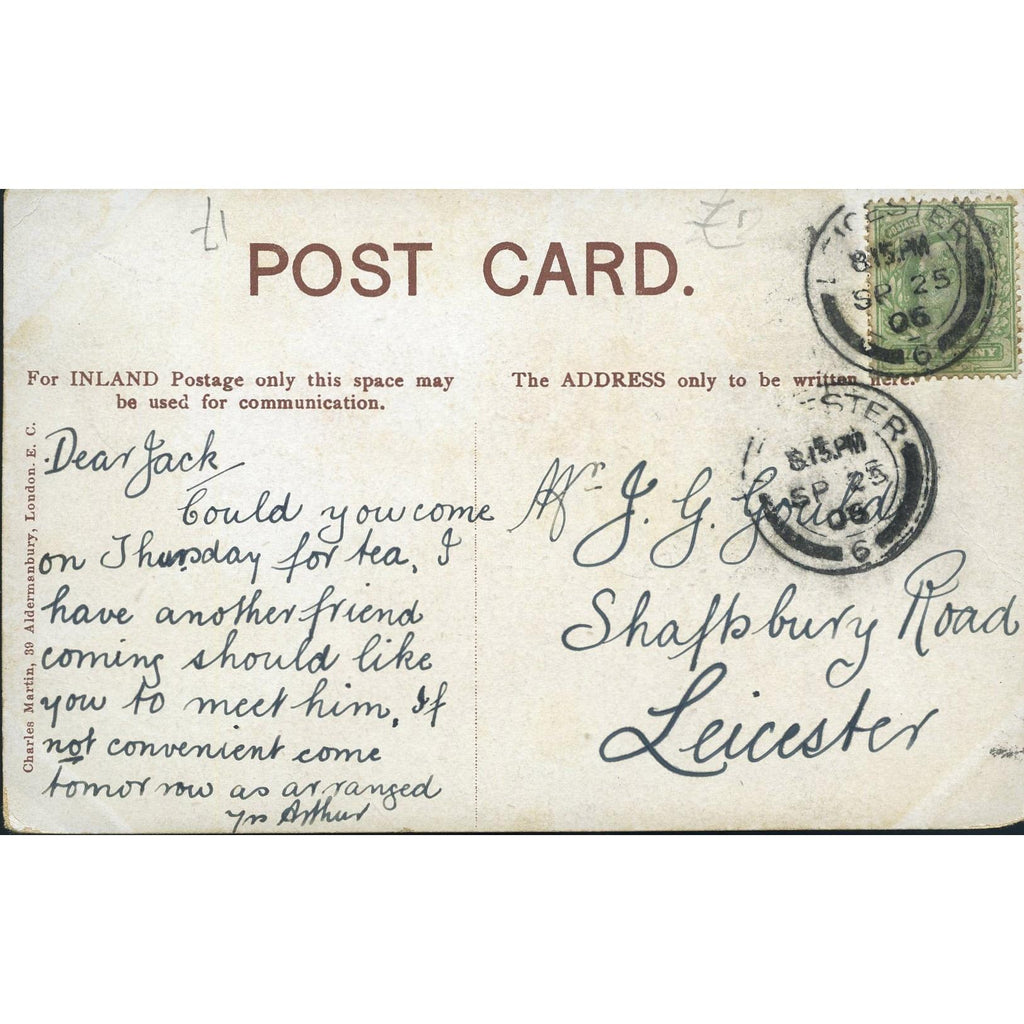 POST CARD.
For INLAND Postage only this space may
be used for communication.
The ADDRESS only to be written here.
Charles Martin, 39 Aldermanbury, London. E. C.
Dear Jack
Could you come
on Thursday for tea, I
have another friend
coming should like
you to meet him. If
not convenient come
tomorrow as arranged
yrs Arthur
Mr J. G. Gould
Shaftsbury Road
Leicester
LEICESTER
8.15.PM
SP 25
06
6
NNY
ESTER
8.15.PM
SP 25
06
6
£1